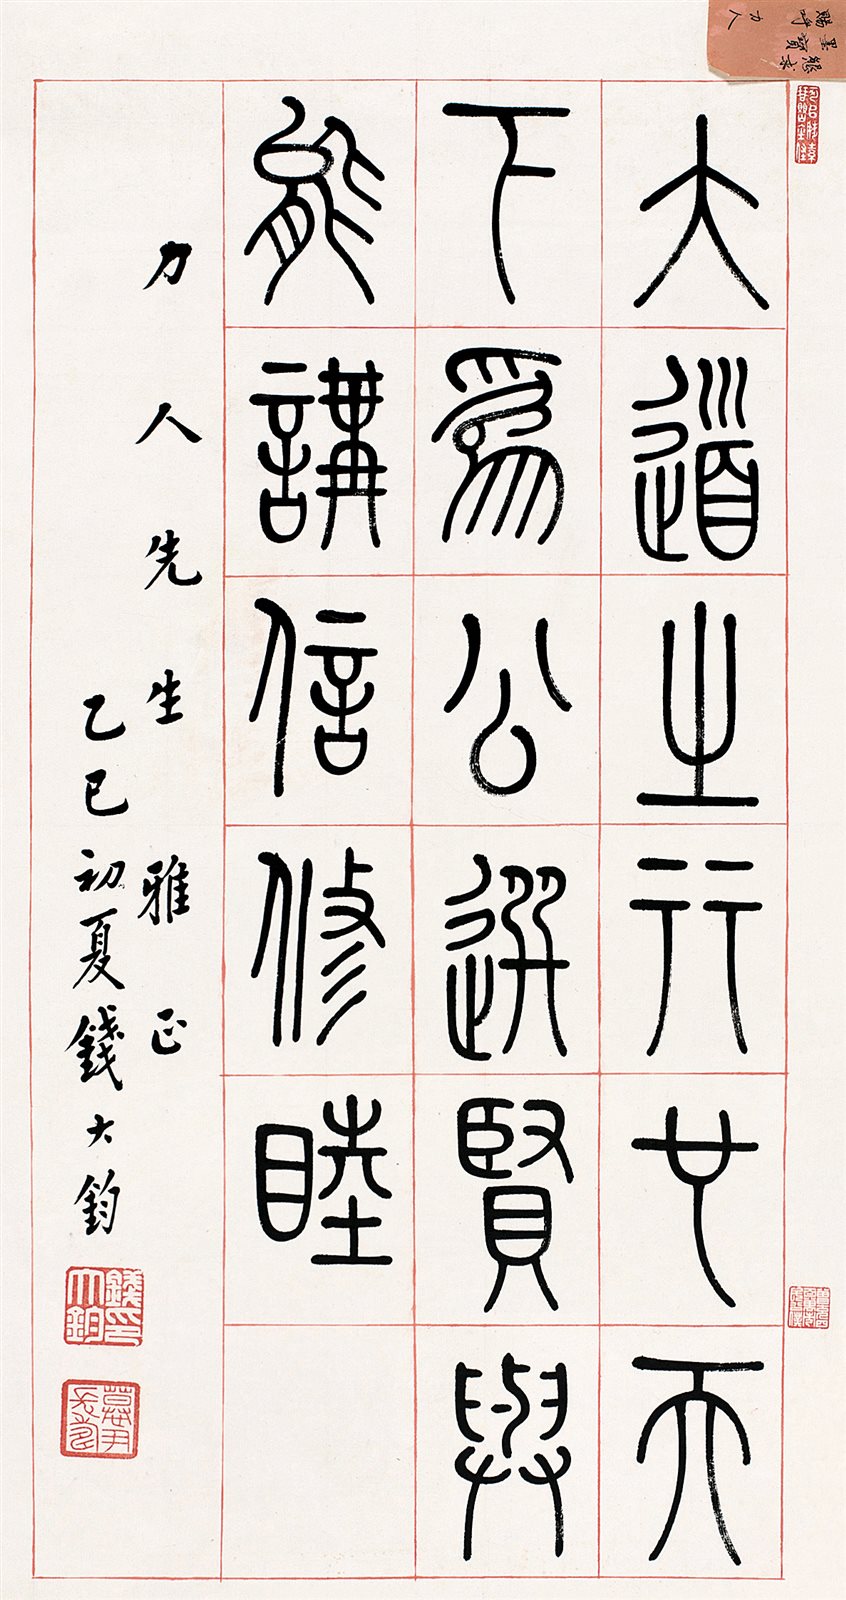 懇求
墨寶
賜呼
力人
大道之行也天
下爲公選賢與
能講信修睦
力人先生雅正
乙巳初夏錢大鈞
錢大鈞印